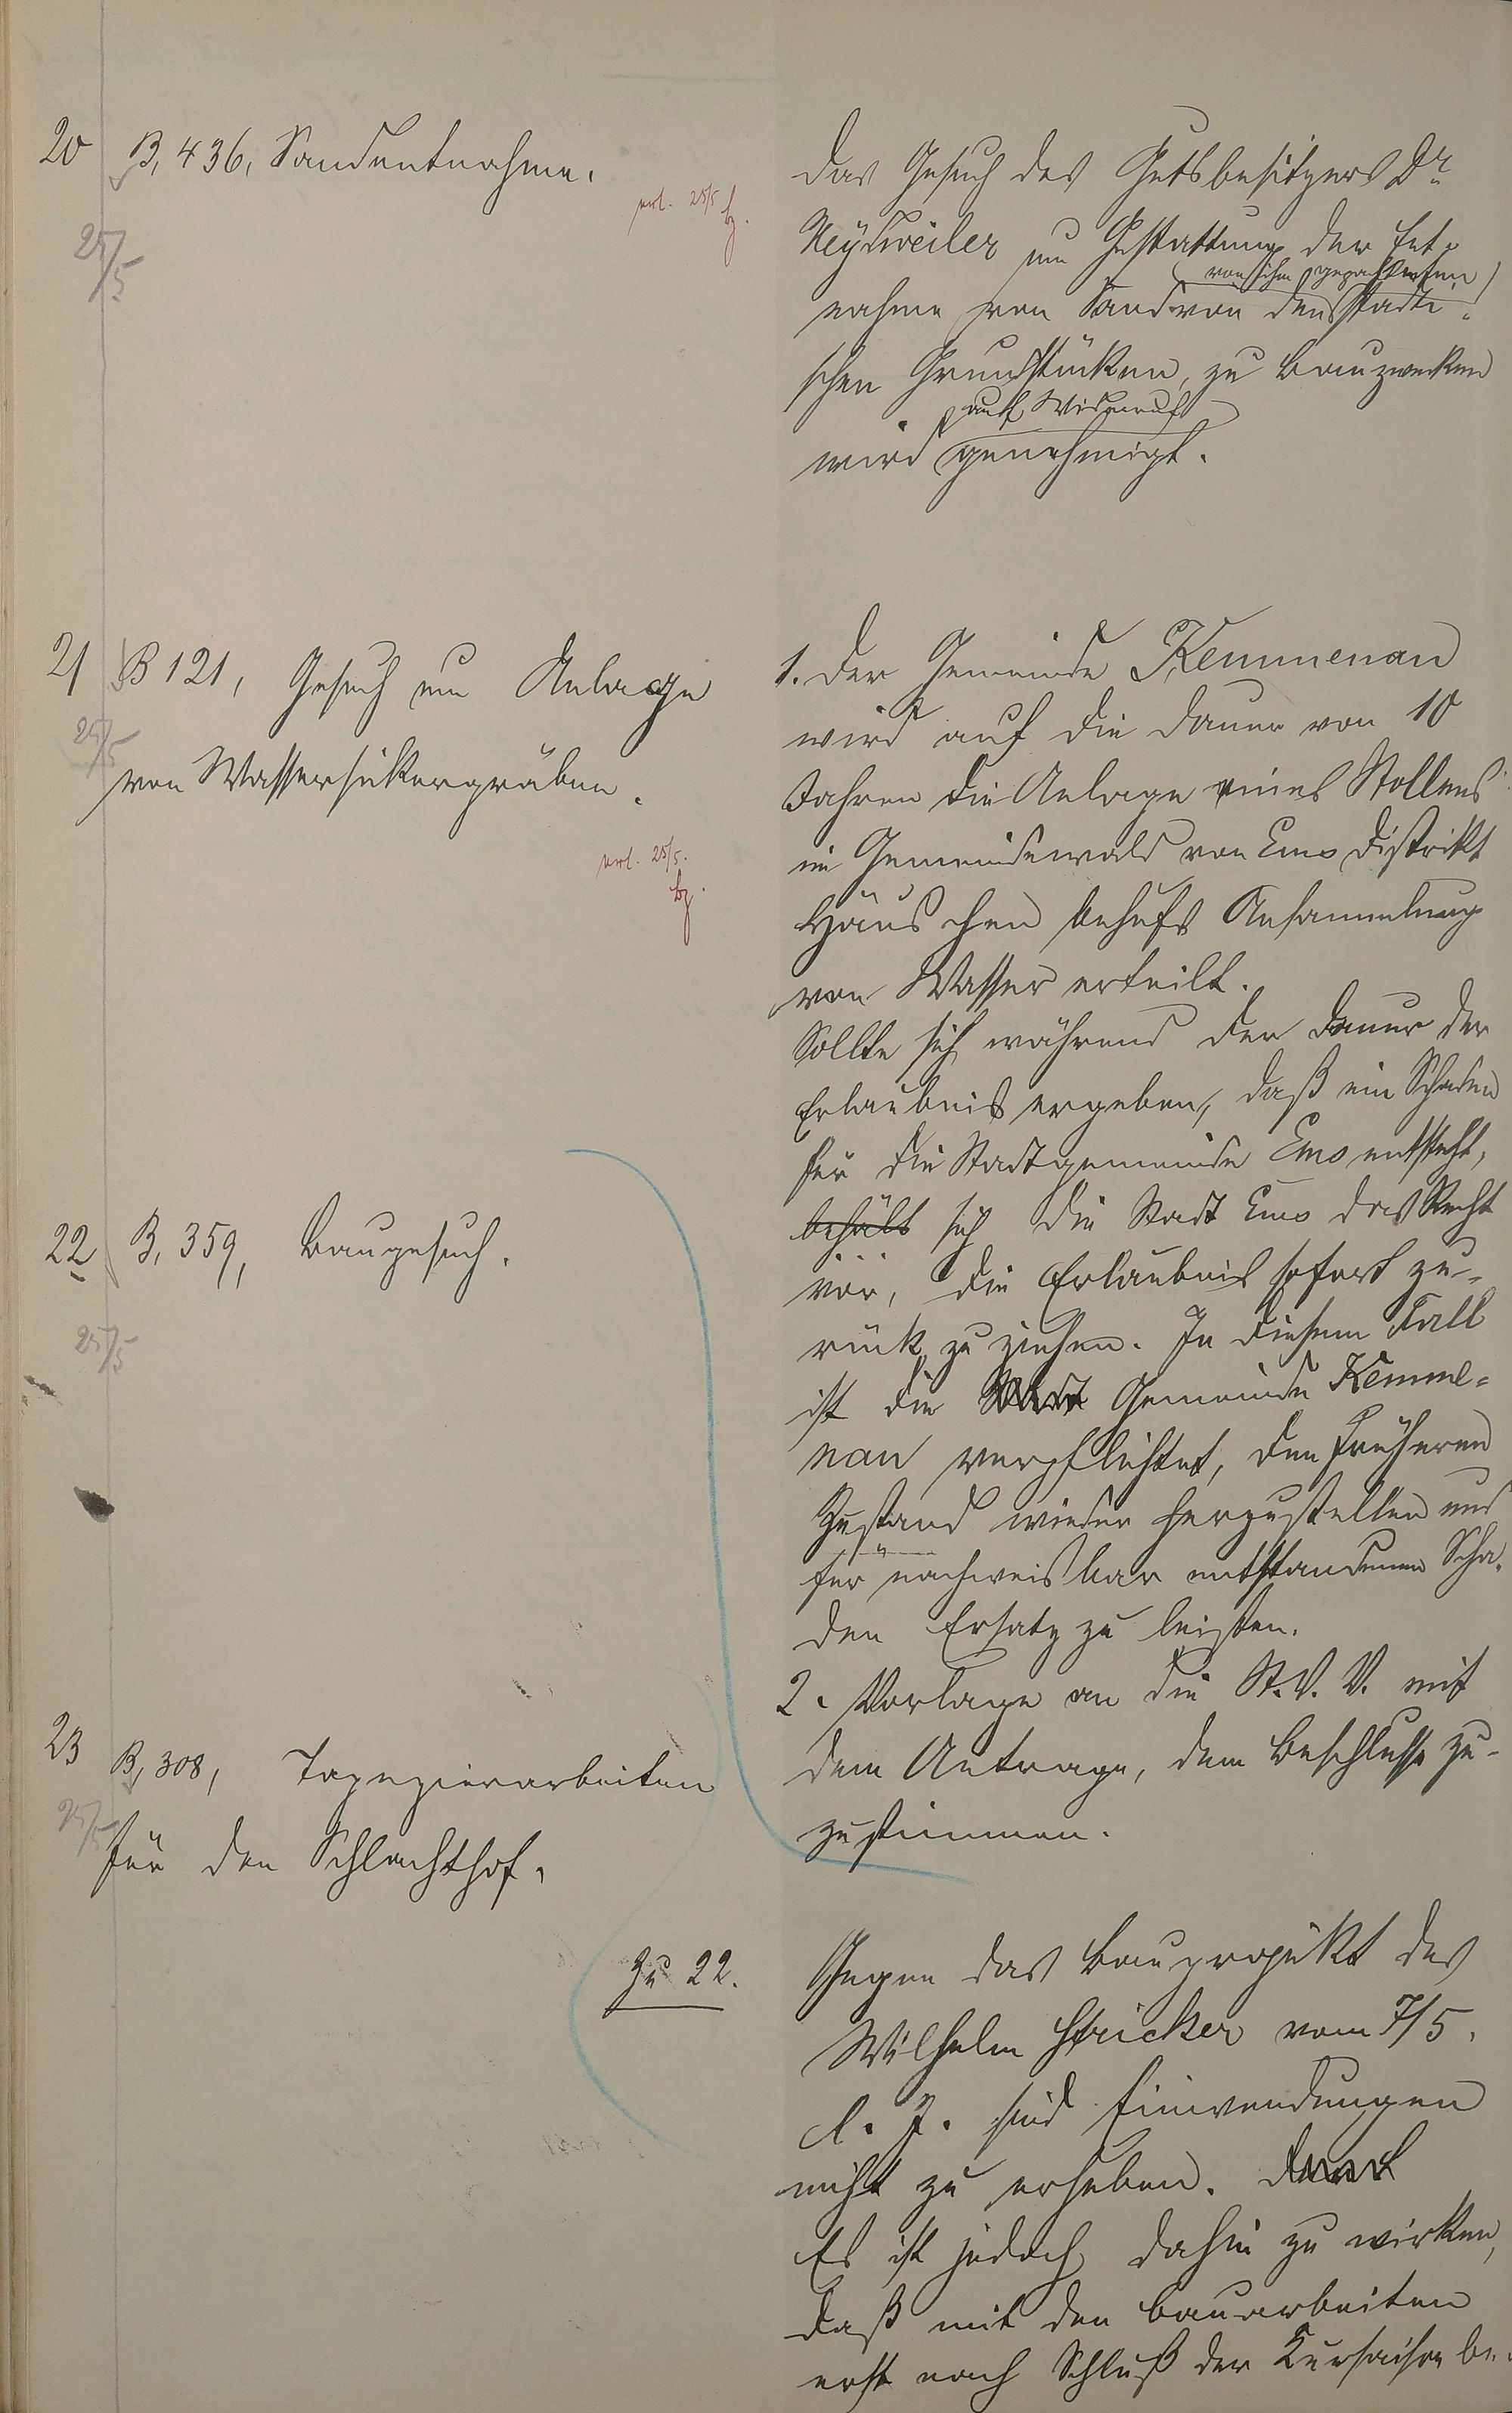 20 B. 436, Sandentnahme.
erl. 25/5
25/5
Das Gesuch des Gutsbesitzers Dr.
um Gestattung der Ent-
(von ihm gepachteten)
nahme von Sand von den städti-
schen Grundstücken, zu Bauzwecken
auf Widerruf
wird genehmigt.
21 B 121, Gesuch um Anlage
25/5
von Wassersickergräben.
erl. 25/5.
1. Der Gemeinde Kemmenau
wird auf die Dauer von 10
Jahren die Anlage eines Stollens
im Gemeindewald von Ems Distrikt
Häuschen behufs Ansammlung
von Wasser erteilt.
Sollte sich während der Dauer der
Erlaubnis ergeben, daß ein Schaden
für die Stadtgemeinde Ems entsteht,
behält sich die Stadt Ems das Recht
vor, die Erlaubnis sofort zu-
rück zu ziehen. In diesem Fall
ist die Stadt Gemeinde Kemme-
nau verpflichtet, den früheren
Zustand wieder herzustellen und
für nachweisbar entstandenen Scha-
den Ersatz zu leisten.
2. Vorlage an die St. V. V. mit
dem Antrage, dem Beschlusse zu-
zustimmen.
22 B. 359, Baugesuch.
25/5
23 B. 308, Tapezierarbeiten
25/5
für den Schlachthof.
Zu 22.
Gegen das Bauprojekt des
Wilhelm Stricker vom 7/5.
l. J. sind Einwendungen
nicht zu erheben.
Es ist jedoch dahin zu wirken,
daß mit den Bauarbeiten
erst nach Schluß der Kursaison be-